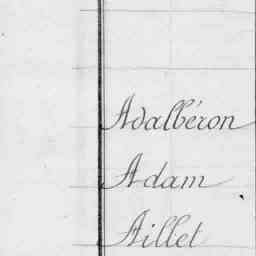 Adalbéron
Adam
Aillet